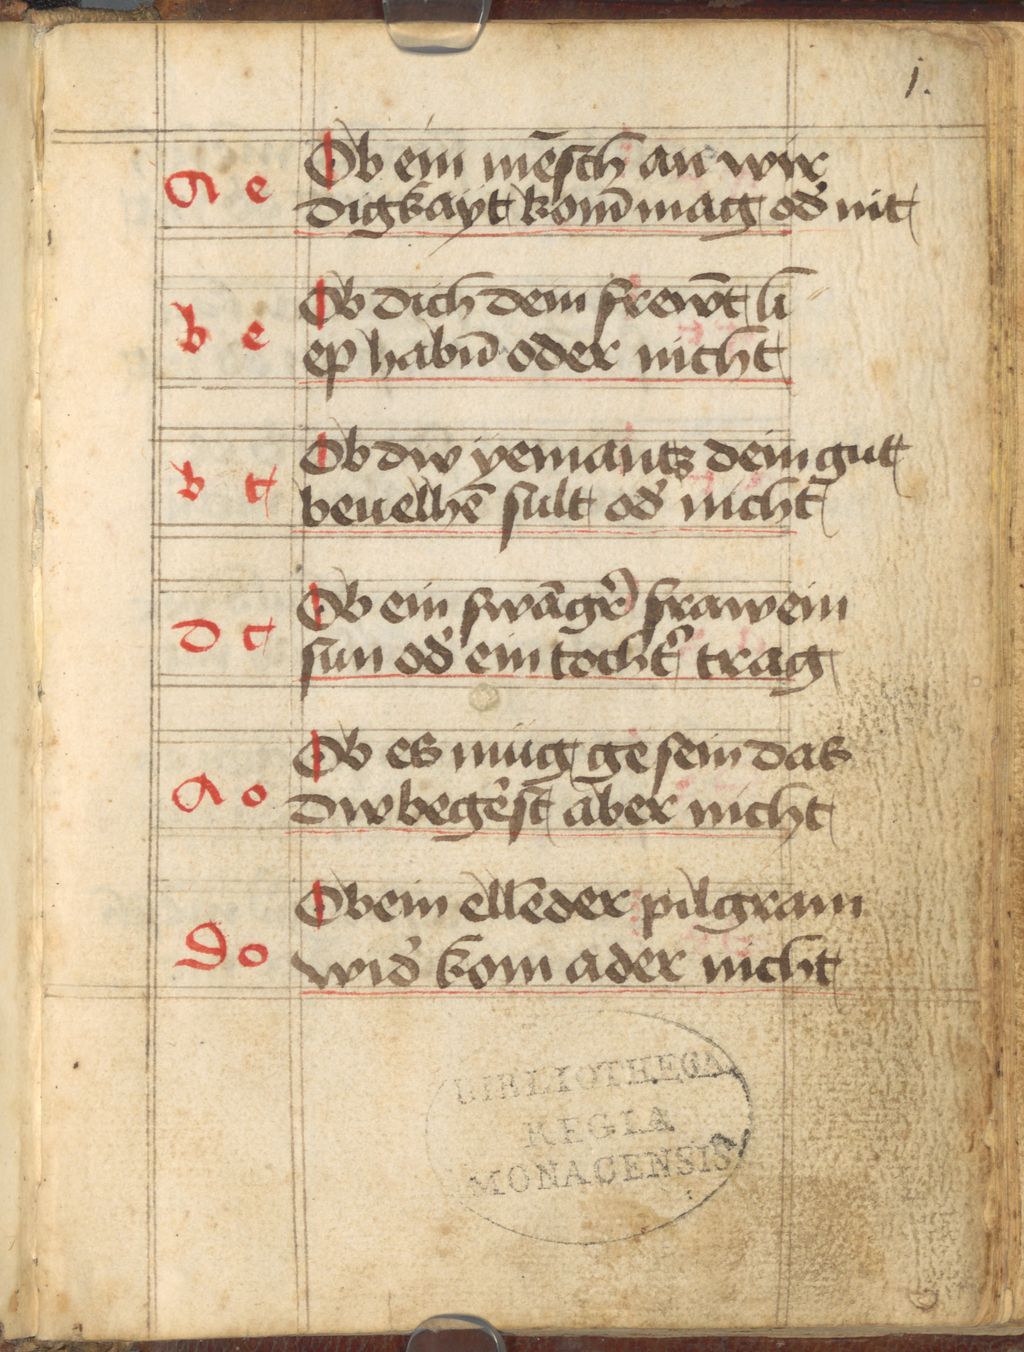 j.
A e Ob ein mēsch an wir
digkayt kom̄ mag od̕ nit
b e Ob dich dein frewn̄t li
ep habn̄ oder nicht
b t Ob dw yemantz dein gut
beuelhē sult od̕ nicht
d t Ob ein swāgr̕ fraw ein
sun od̕ ein tocht̕ trag
A o Ob es müg ge sein das
dw beger̕st aber nicht
D o Ob ein ellēder pilgram
wid̕ kom ader nicht
BIBLIOTHECA
REGIA
MONACENSIS